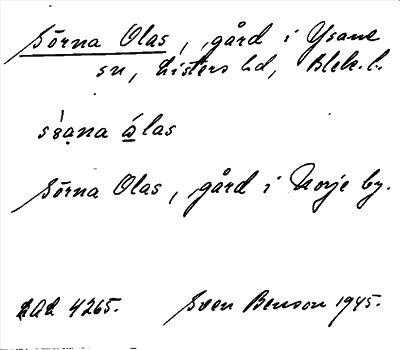 Sörna Olas, gård i Ysane
sn, Listers hd, Blek. l.
sǝ̀ana álas
Sörna Olas, gård i Norje by.
LAL 4265. Sven Benson 1945.